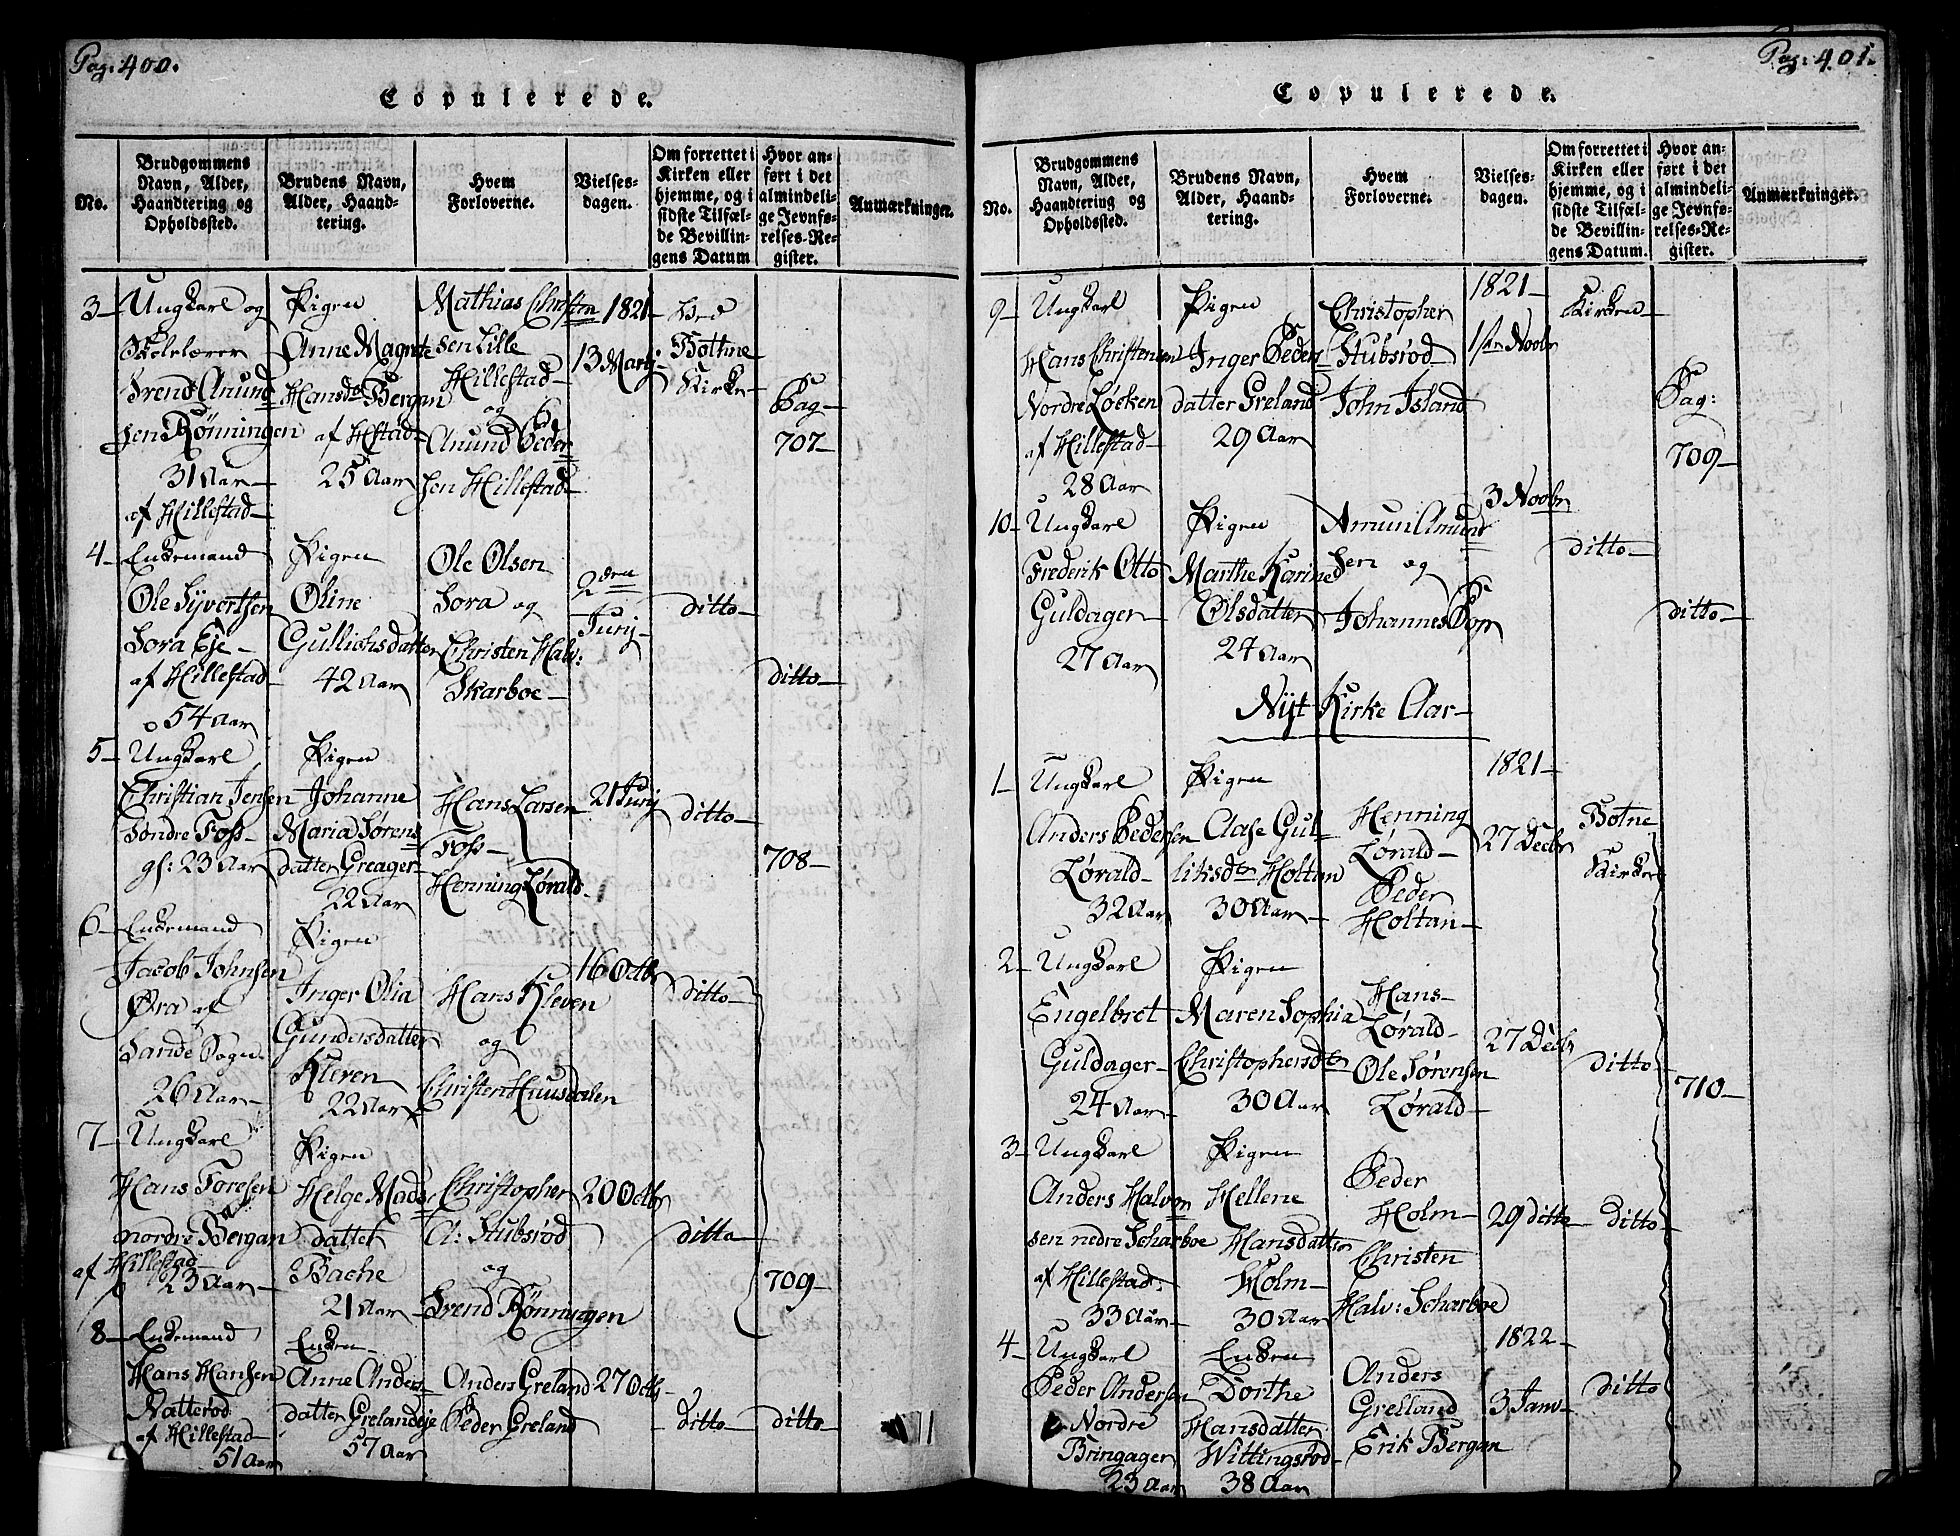 Pag: 400.
Copulerede.
No.
Brudgommens Navn, Alder, Haandtering og Opholdssted.
Brudens Navn, Alder, Haandtering.
Hvem Forloverne.
Vielsesdagen.
Om forrettet i Kirken eller hjemme, og i sidste Tilfælde Bevillingens Datum
Hvor anført i det almindelige Jevnførelses-Register.
Anmærkninger.
3 Ungkarl og Pigen Mathias Christen 1821 Ved
Skolelærer Anne Magrete sen Lille 13 Martj Bottne
Svend Anund Hansd. Bergan Hillestad Kirke Pag
sen Rönningen af Hstad og Anund Peder 707
31 Aar 25 Aar sen Hillestad
af Hillestad
4 Enkemand Pigen Ole Olsen
Ole Syvertsen Oline Sora og 2den ditto
Sora Eje Gullichsdatter Christen Halv: Junj
af Hillestad 42 Aar Skarboe ditto
54 Aar
5 Ungkarl Pigen
Christian Jensen Johanne Hans Larsen 21 Junj ditto
Søndre Foss Maria Sørens Foss
gf: 23 Aar datter Greager Henning Lørald 708
22 Aar
6 Enkemand Pigen
Jacob Johnsen Inger Olia Hans Kleven 16 Octbr ditto
Øra af Gundersdatter og
Sande Sogn Kleven Christen Huusdalen
26 Aar 22 Aar
7 Ungkarl Pigen
Hans Toresen Helge Mads Christopher 20 Octbr
nordre Bergan datter A: Stubsrød ditto
af Hillestad Bache og
23 Aar 21 Aar Svend Rönningen 709
8 Enkemand Enken
Hans Hansen Anne Anders Anders Greland 27 Octb
Natterød datter Grelandeje Peder Greland ditto ditto
af Hillestad 57 Aar
51 Aar
Pag: 401.
Copulerede.
No.
Brudgommens Navn, Alder, Haandtering og Opholdssted.
Brudens Navn, Alder, Haandtering.
Hvem Forloverne.
Vielsesdagen.
Om forrettet i Kirken eller hjemme, og i sidste Tilfælde Bevillingens Datum.
Hvor anført i det almindelige Jevnførelses-Register.
Anmærkninger.
9 Ungkarl Pigen Christopher 1821 Kirken
Hans Christensen Inger Peders Stubsrød 1ste Novbr
Nordre Løcken datter Greland John Island Pag:
af Hillestad 29 Aar 709
28 Aar
10 Ungkarl Pigen Amund 3 Novbr
Frederik Otto Marthe Karine sen og ditto
Guldager Olsdatter Johannes ditto
27 Aar 24 Aar
Nyt Kirke Aar
1 Ungkarl Pigen 1821
Anders Pedersen Aase Gul Henning 27 Decbr Botne
Lørald liksdtr Holtan Lørald Kirke
32 Aar 30 Aar Peder
Holtan
2 Ungkarl Pigen Hans
Engelbret Maren Sophia Lørald 27 Decbr
Guldager Christophersdtr Ole Sørensen ditto
24 Aar 30 Aar Lørald 710
3 Ungkarl Pigen Peder
Anders Halvor Hellene Holm 29 ditto ditto
sen nedre Scharboe Hansdatter Christen
af Hillestad: Holm Halv: Scharboe
33 Aar 30 Aar
4 Ungkarl Enken 1822
Peder Andersen Dorthe Anders ditto
Nordre Hansdatter Grelland 3 Janv
Bringager Wittingsrød Erik Bergan
23 Aar 38 Aar